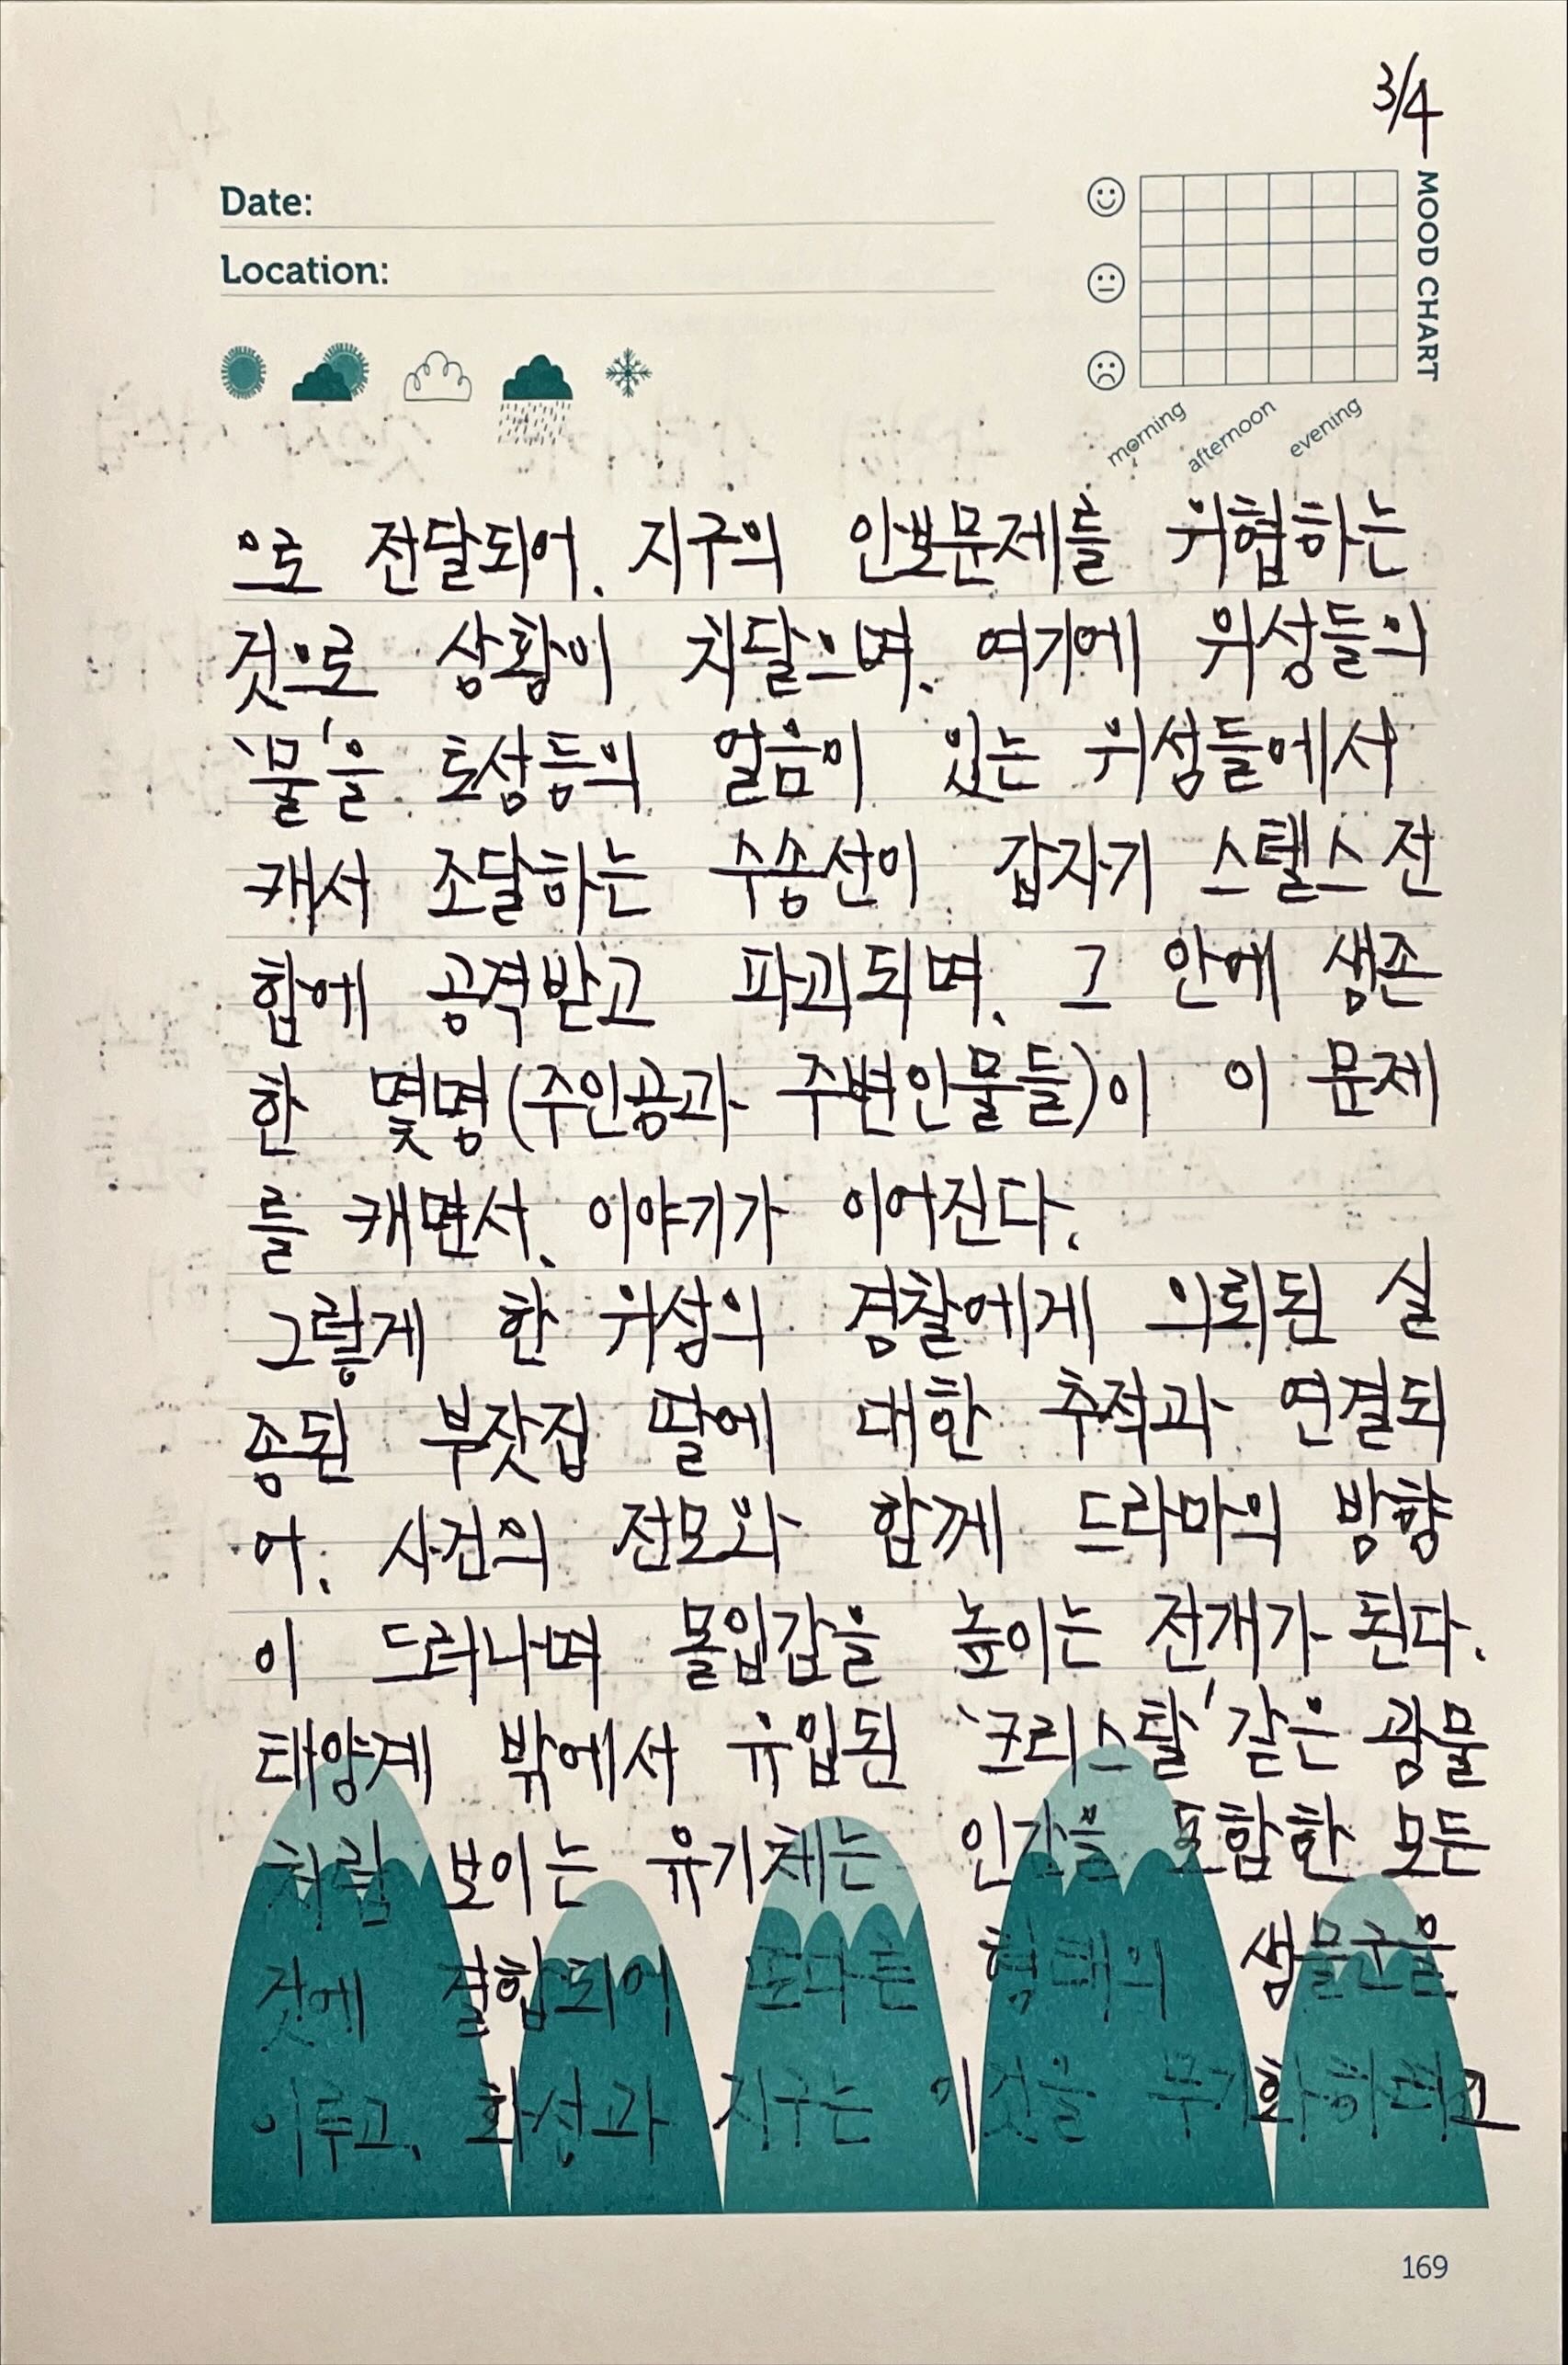 3/4
Date:
Location:
MOOD CHART
morning afternoon evening
으로 전달되어, 지구의 안보문제를 위협하는
것으로 상황이 치달으며, 여기에 위성들의
'물'을 토성등의 얼음이 있는 위성들에서
캐서 조달하는 수송선이 갑자기 스텔스 전
함에 공격받고 파괴되며, 그 안에 생존
한 몇명(주인공과 주변인물들)이 이 문제
를 캐면서, 이야기가 이어진다.
그렇게 한 위성의 경찰에게 의뢰된 실
종된 부잣집 딸에 대한 추적과 연결되
어, 사건의 전모와 함께 드라마의 방향
이 드러나며 몰입감을 높이는 전개가 된다.
태양계 밖에서 유입된 '크리스탈' 같은 광물
처럼 보이는 유기체는 인간을 포함한 모든
것에 결합되어 또다른 형태의 생물군을
이루고, 화성과 지구는 이것을 무기화하려고
169